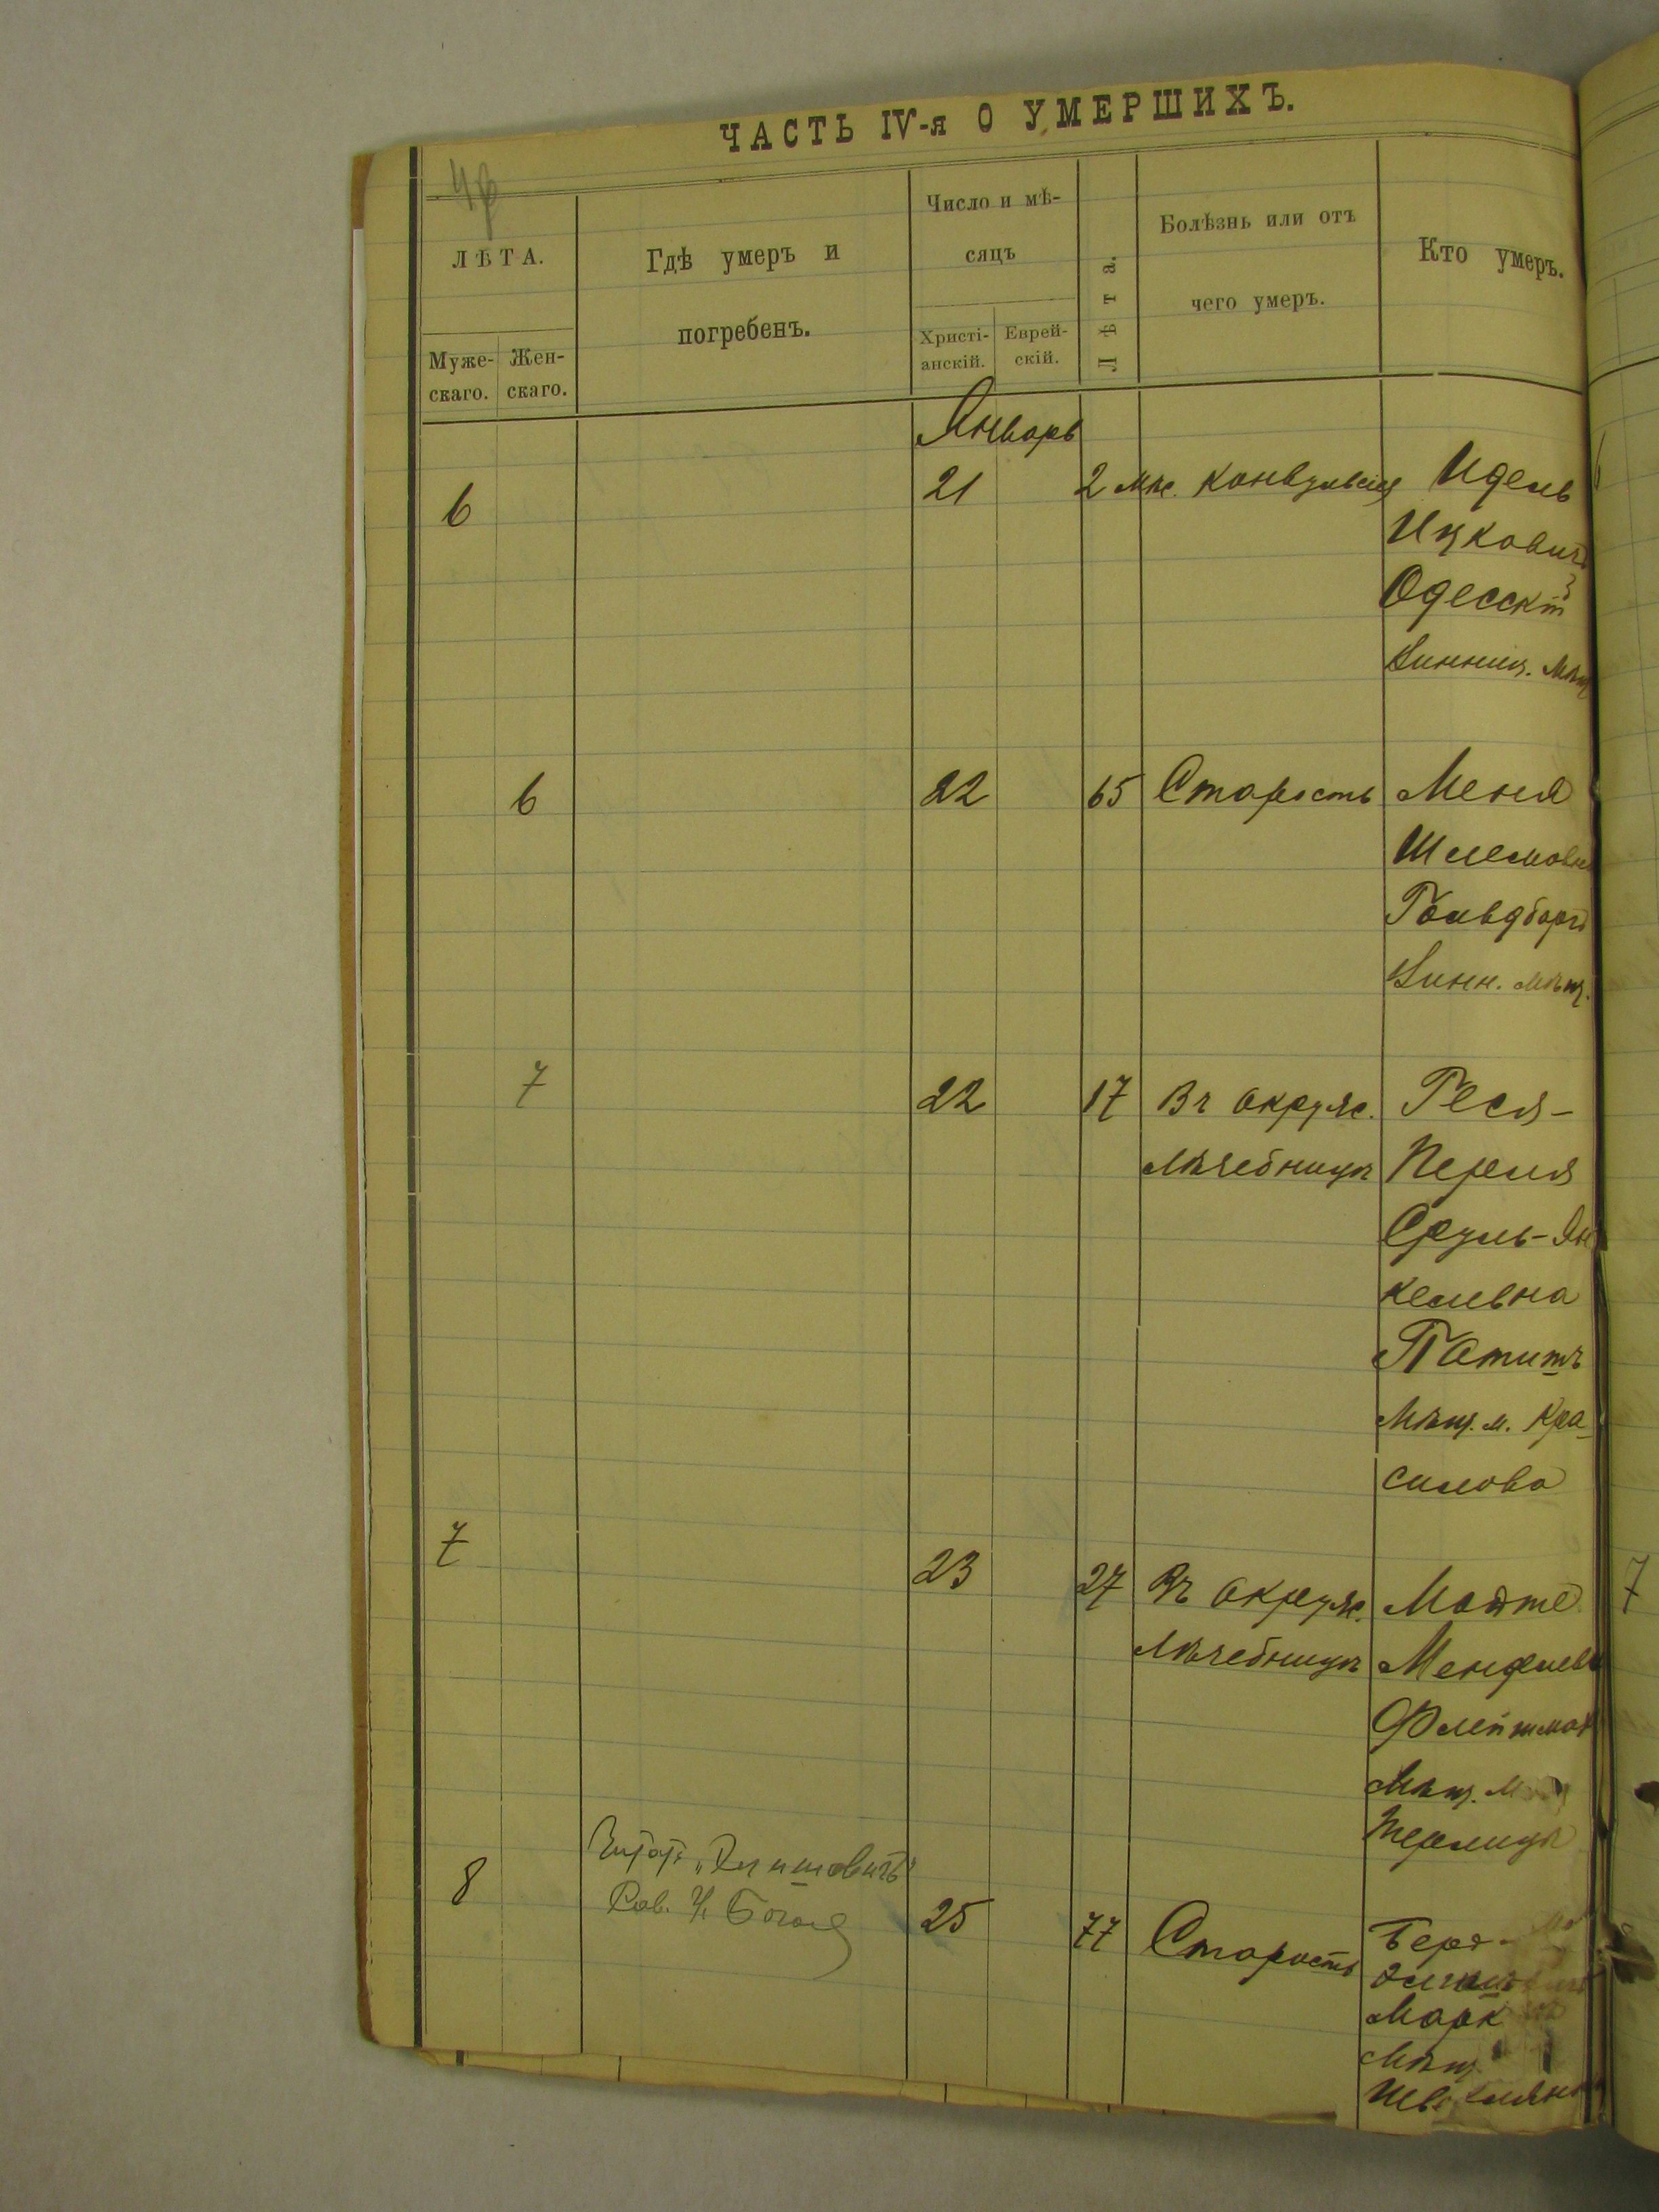 ЧАСТЬ IV-я О УМЕРШИХЪ.
ЛѢТА.
Муже-скаго.
Жен-скаго.
Гдѣ умеръ и
погребенъ.
Число и мѣ-
сяцъ
Христі-анскій.
Еврей-скій.
Лѣта.
Болѣзнь или отъ
чего умеръ.
Кто умеръ.
Январь
6 21 2 мѣс. Конвульсія Идель
Ицковичъ
Одесскій
Винниц. мѣщ
6 22 65 Старость Меня
Шлемовна
Гольдбергъ
Винн. мѣщ.
7 22 17 Въ окруж. Геся-
лѣчебницѣ Перля
Сруль-Ян
келевна
мѣщ. м. Кра-
силова
7 23 27 Въ окруж. Мотте
лѣчебницѣ
Флейшман
мѣщ. м
Терлицы
8 25 77 Старость
Марк
мѣщ.
7